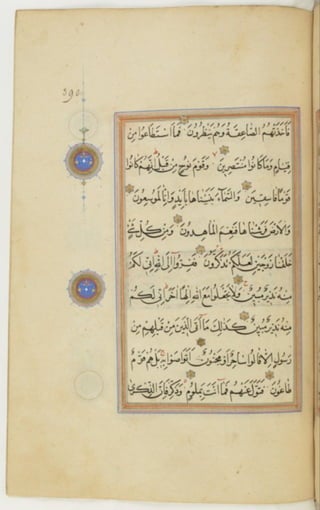 390
فَأَخَذَتْهُمُ الصَّاعِقَةُ وَهُمْ يَنْظُرُونَ فَمَا اسْتَطَاعُوا مِنْ
قِيَامٍ وَمَا كَانُوا مُنْتَصِرِينَ وَقَوْمَ نُوحٍ مِنْ قَبْلُ إِنَّهُمْ كَانُوا
قَوْمًا فَاسِقِينَ وَالسَّمَاءَ بَنَيْنَاهَا بِأَيْدٍ وَإِنَّا لَمُوسِعُونَ
وَالْأَرْضَ فَرَشْنَاهَا فَنِعْمَ الْمَاهِدُونَ وَمِنْ كُلِّ شَيْءٍ
خَلَقْنَا زَوْجَيْنِ لَعَلَّكُمْ تَذَكَّرُونَ فَفِرُّوا إِلَى اللَّهِ إِنِّي لَكُمْ
مِنْهُ نَذِيرٌ مُبِينٌ وَلَا تَجْعَلُوا مَعَ اللَّهِ إِلَهًا آخَرَ إِنِّي لَكُمْ
مِنْهُ نَذِيرٌ مُبِينٌ كَذَلِكَ مَا أَتَى الَّذِينَ مِنْ قَبْلِهِمْ مِنْ
رَسُولٍ إِلَّا قَالُوا سَاحِرٌ أَوْ مَجْنُونٌ أَتَوَاصَوْا بِهِ بَلْ هُمْ قَوْمٌ
طَاغُونَ فَتَوَلَّ عَنْهُمْ فَمَا أَنْتَ بِمَلُومٍ وَذَكِّرْ فَإِنَّ الذِّكْرَى